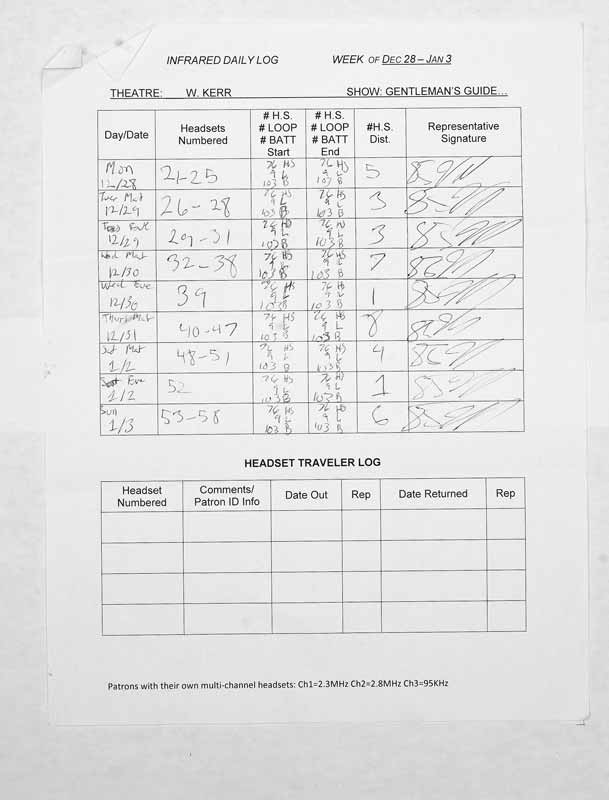 INFRARED DAILY LOG WEEK OF DEC 28 – JAN 3
THEATRE: W. KERR SHOW: GENTLEMAN'S GUIDE...
Day/Date
Headsets
Numbered
# H.S.
# LOOP
# BATT
Start
# H.S.
# LOOP
# BATT
End
#H.S.
Dist.
Representative
Signature
Mon
12/28
21-25
76 HS
9 L
103 B
76 HS
9 L
103 B
5
Tue Mat
12/29
26-28
76 HS
9 L
103 B
76 HS
9 L
103 B
3
Tues Eve
12/29
29-31
76 HS
9 L
103 B
76 HS
9 L
103 B
3
Wed Mat
12/30
32-38
76 HS
9 L
103 B
76 HS
9 L
103 B
7
Wed Eve
12/30
39
76 HS
9 L
103 B
76 HS
9 L
103 B
1
Thurs Mat
12/31
40-47
76 HS
9 L
103 B
76 HS
9 L
103 B
8
Sat Mat
1/2
48-51
76 HS
9 L
103 B
76 HS
9 L
103 B
4
Sat Eve
1/2
52
76 HS
9 L
103 B
76 HS
9 L
103 B
1
Sun
1/3
53-58
76 HS
9 L
103 B
76 HS
9 L
103 B
6
HEADSET TRAVELER LOG
Headset
Numbered
Comments/
Patron ID Info
Date Out
Rep
Date Returned
Rep
Patrons with their own multi-channel headsets: Ch1=2.3MHz Ch2=2.8MHz Ch3=95KHz